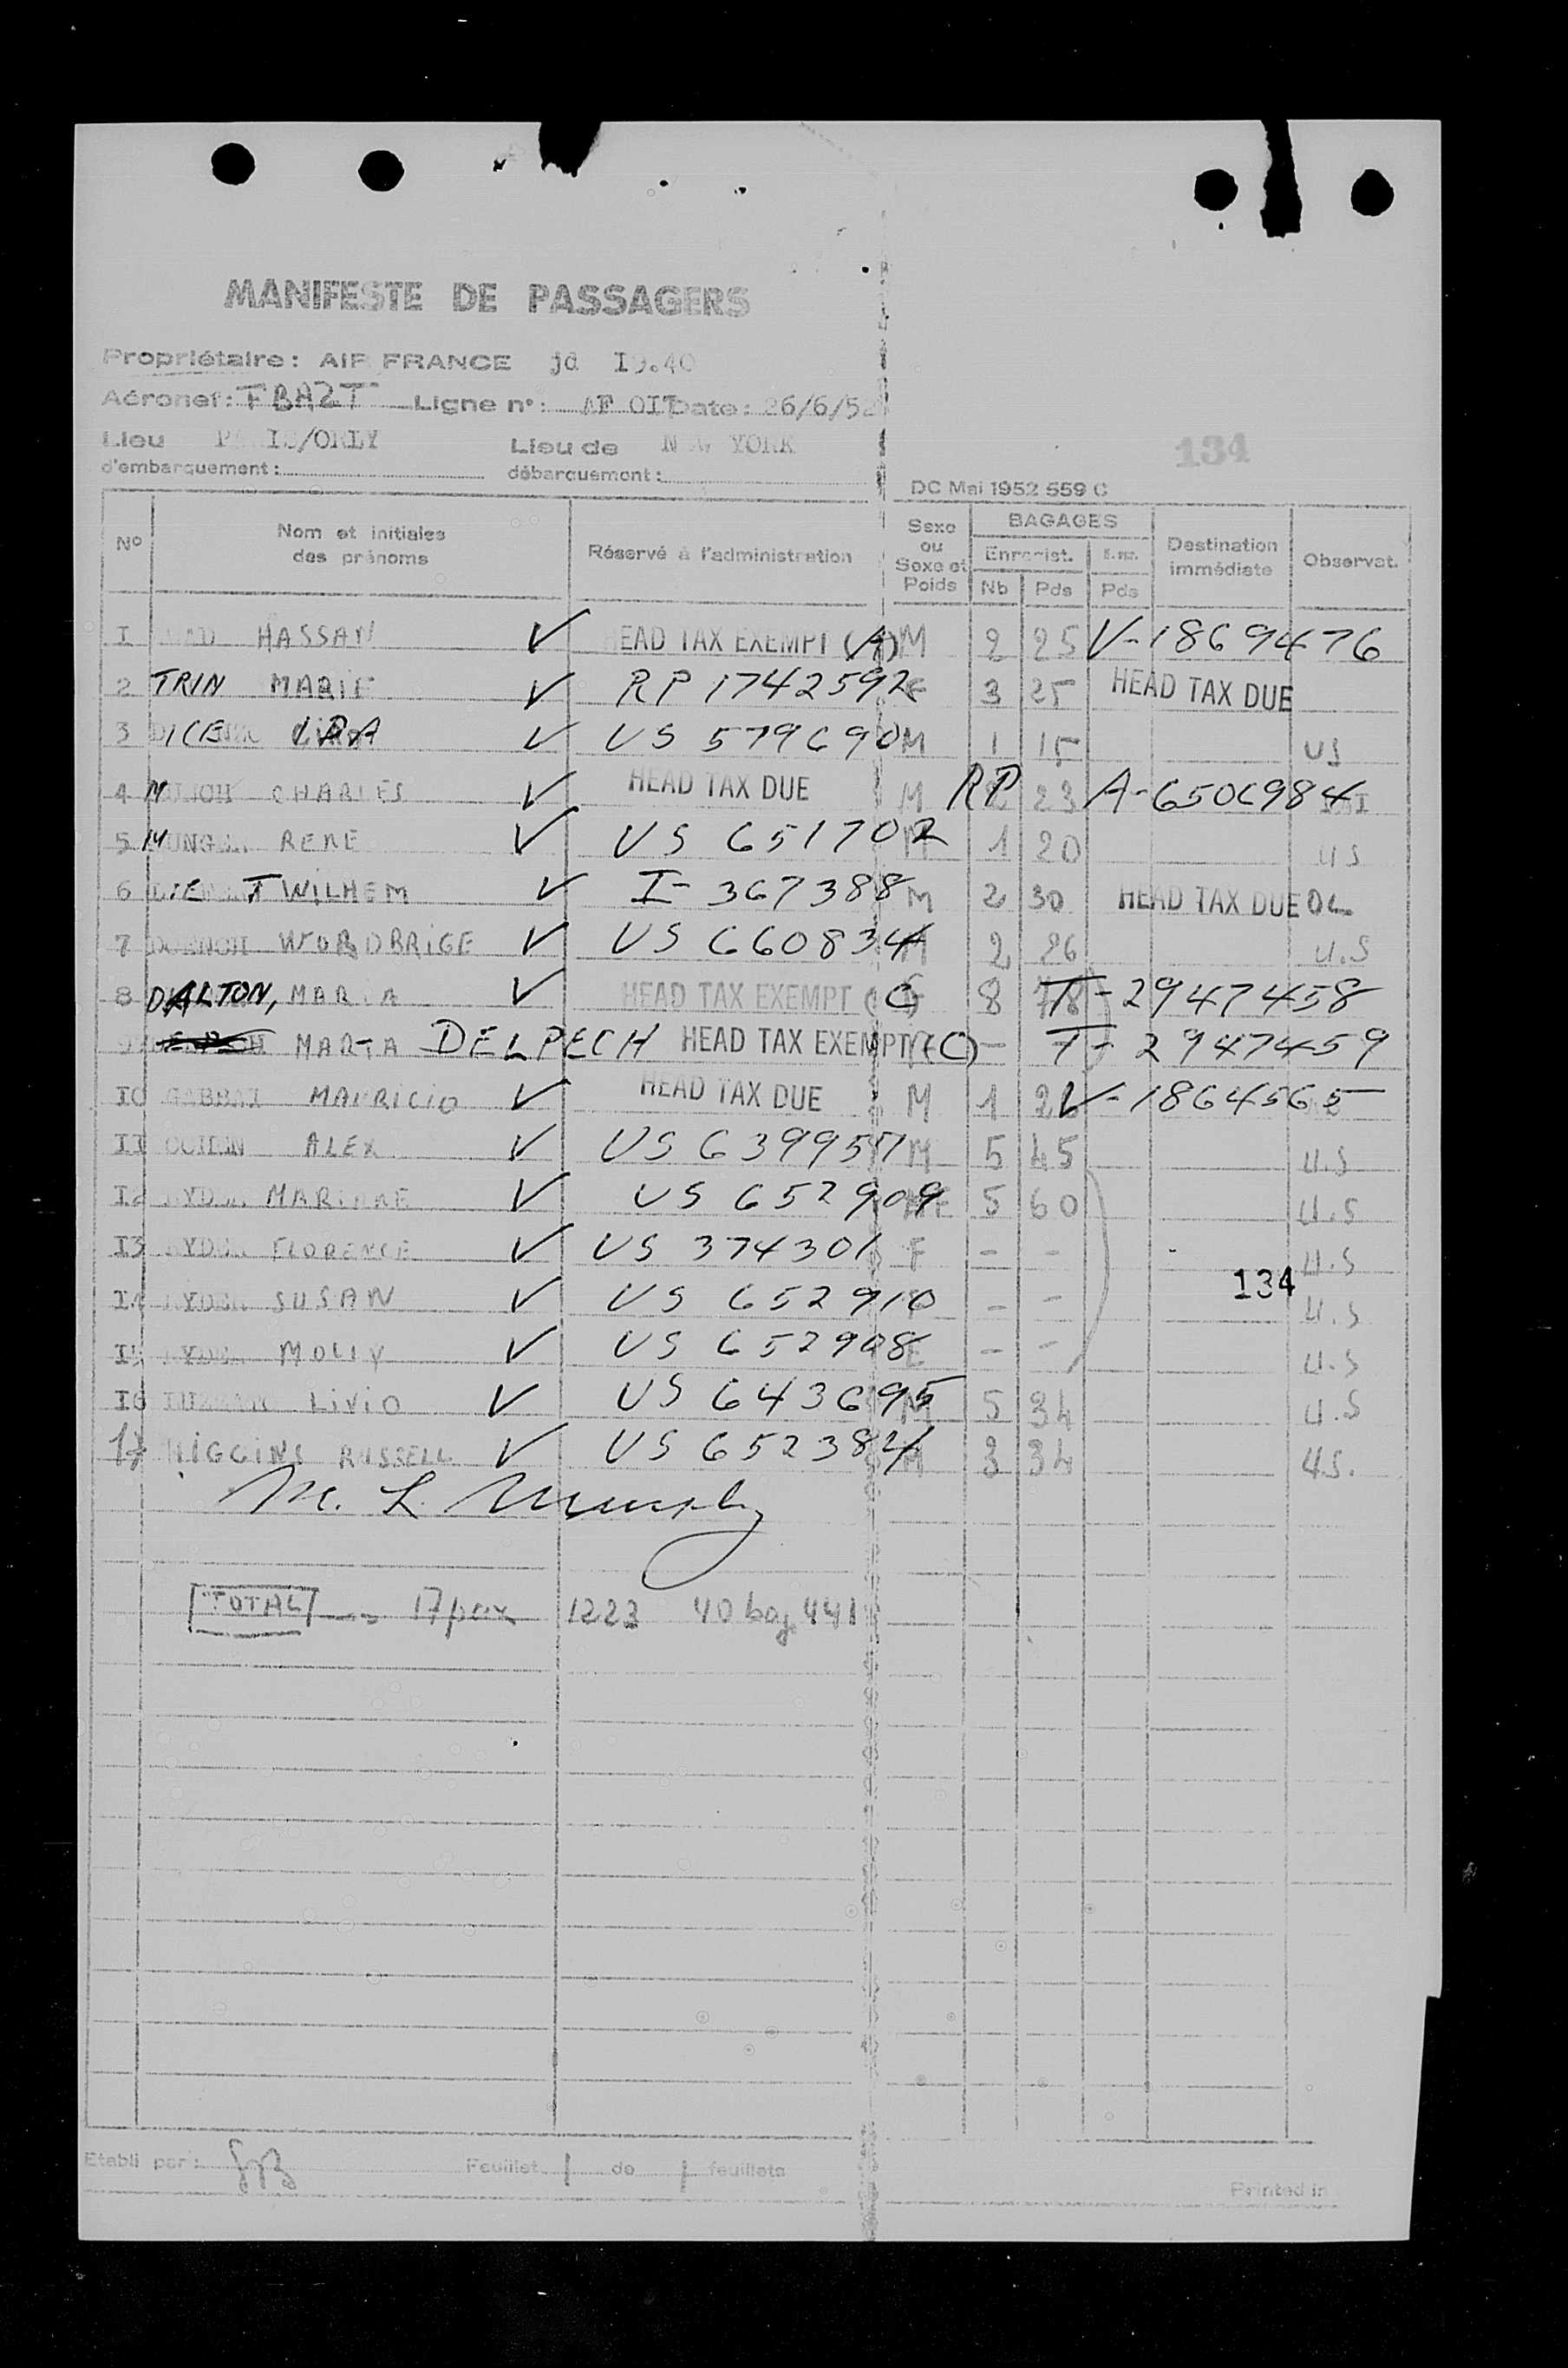 MANIFESTE DE PASSAGERS
Propriétaire: AIR FRANCE jd I9.40
Aéronef: FBAZT Ligne n°: AF OI7 Date: 26/6/52
Lieu d'embarquement: PARIS/ORLY Lieu de débarquement: NEW YORK
134
DC Mai 1952 559 C
N° Nom et initiales des prénoms Réservé à l'administration Sexe ou Sexe et Poids BAGAGES Enregist. Nb Pds Pds Destination immédiate Observat.
I HASSAN ✓ HEAD TAX EXEMPT (A) M 2 25 V-1869476
2 TRIN MARIE ✓ RP 1742592 F 3 25 HEAD TAX DUE
3 DICE IRA ✓ US 579690 M 1 15 US
4 CHARLES ✓ HEAD TAX DUE M RP 23 A-6506984
5 RENE ✓ US 651702 M 1 20 US
6 WILHEM ✓ I-367388 M 2 30 HEAD TAX DUE
7 WORDBRIGE ✓ US 660834 M 2 26 U.S
8 DALTON, MARIA ✓ HEAD TAX EXEMPT (C) 8 78 T-2947458
9 MARTA DELPECH HEAD TAX EXEMPT (C) - T-2947459
IO MAURICIO ✓ HEAD TAX DUE M 1 V-1864565
II ALEX ✓ US 639957 M 5 45 U.S
I2 ✓ US 652909 5 60 U.S
I3 FLORENCE ✓ US 374301 F - - U.S
134
I4 SUSAN ✓ US 652910 - - U.S
I5 MOLLY ✓ US 652908 - - U.S
I6 LIVIO ✓ US 643695 M 5 34 U.S
17 HIGGINS RUSSELL ✓ US 652384 M 3 34 US.
M. L. Murphy
TOTAL 17 pax 1223 40 bag. 441
Etabli par: Feuillet 1 de 1 feuillets
Printed in